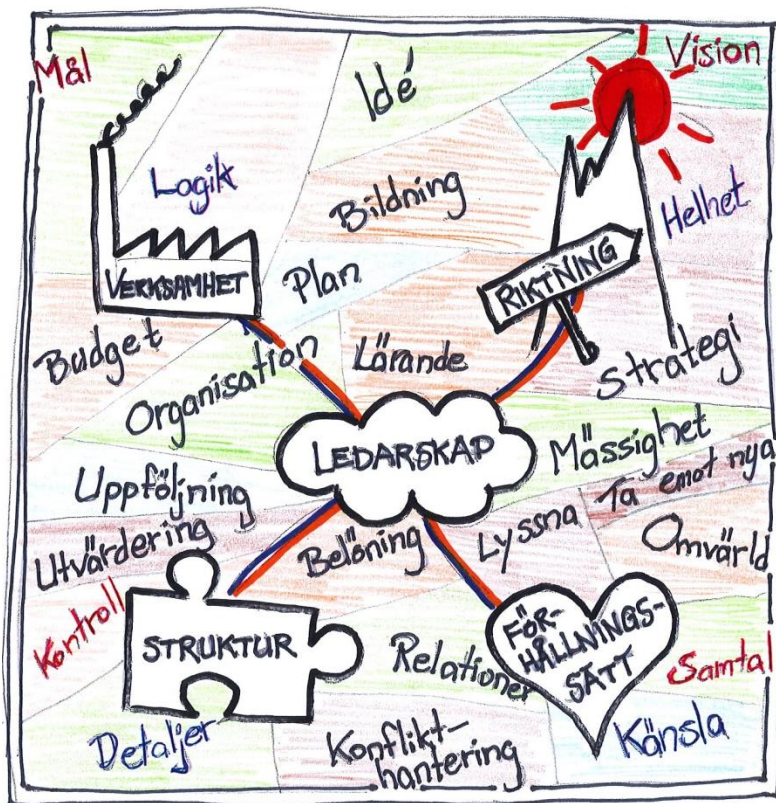 Mål
Idé
Vision
Logik
Bildning
Helhet
VERKSAMHET
Plan
RIKTNING
Budget
Organisation
Lärande
Strategi
LEDARSKAP
Mässighet
Ta emot nya
Uppföljning
Utvärdering
Belöning
Lyssna
Omvärld
Kontroll
STRUKTUR
Relationer
FÖR-
HÅLLNINGS-
SÄTT
Samtal
Detaljer
Konflikt-
hantering
Känsla